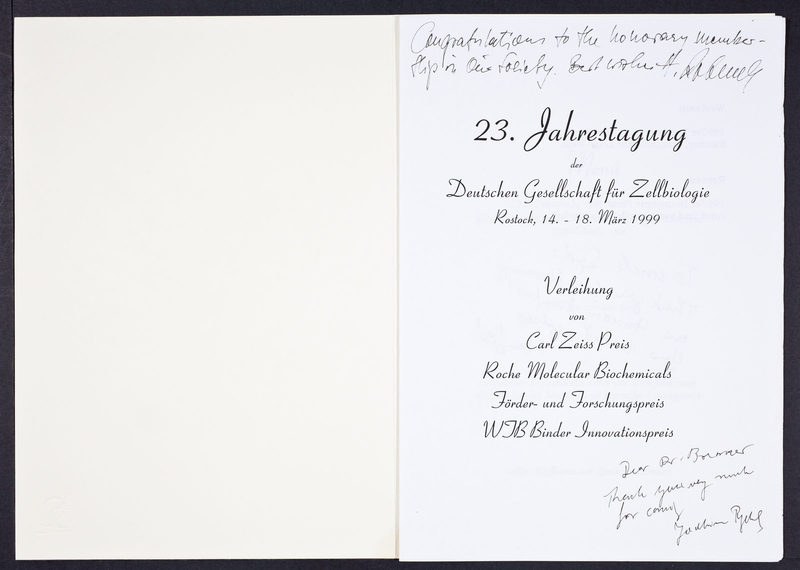 Congratulations to the honorary member-
ship in our Society. Best wishes
23. Jahrestagung
der
Deutschen Gesellschaft für Zellbiologie
Rostock, 14. - 18. März 1999
Verleihung
von
Carl Zeiss Preis
Roche Molecular Biochemicals
Förder- und Forschungspreis
WTB Binder Innovationspreis
Dear Dr.
thank you very much
for coming